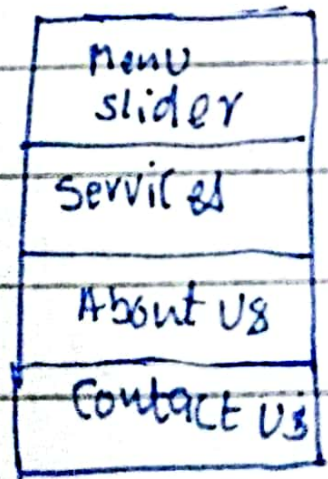 Menu
slider
Services
About us
Contact us